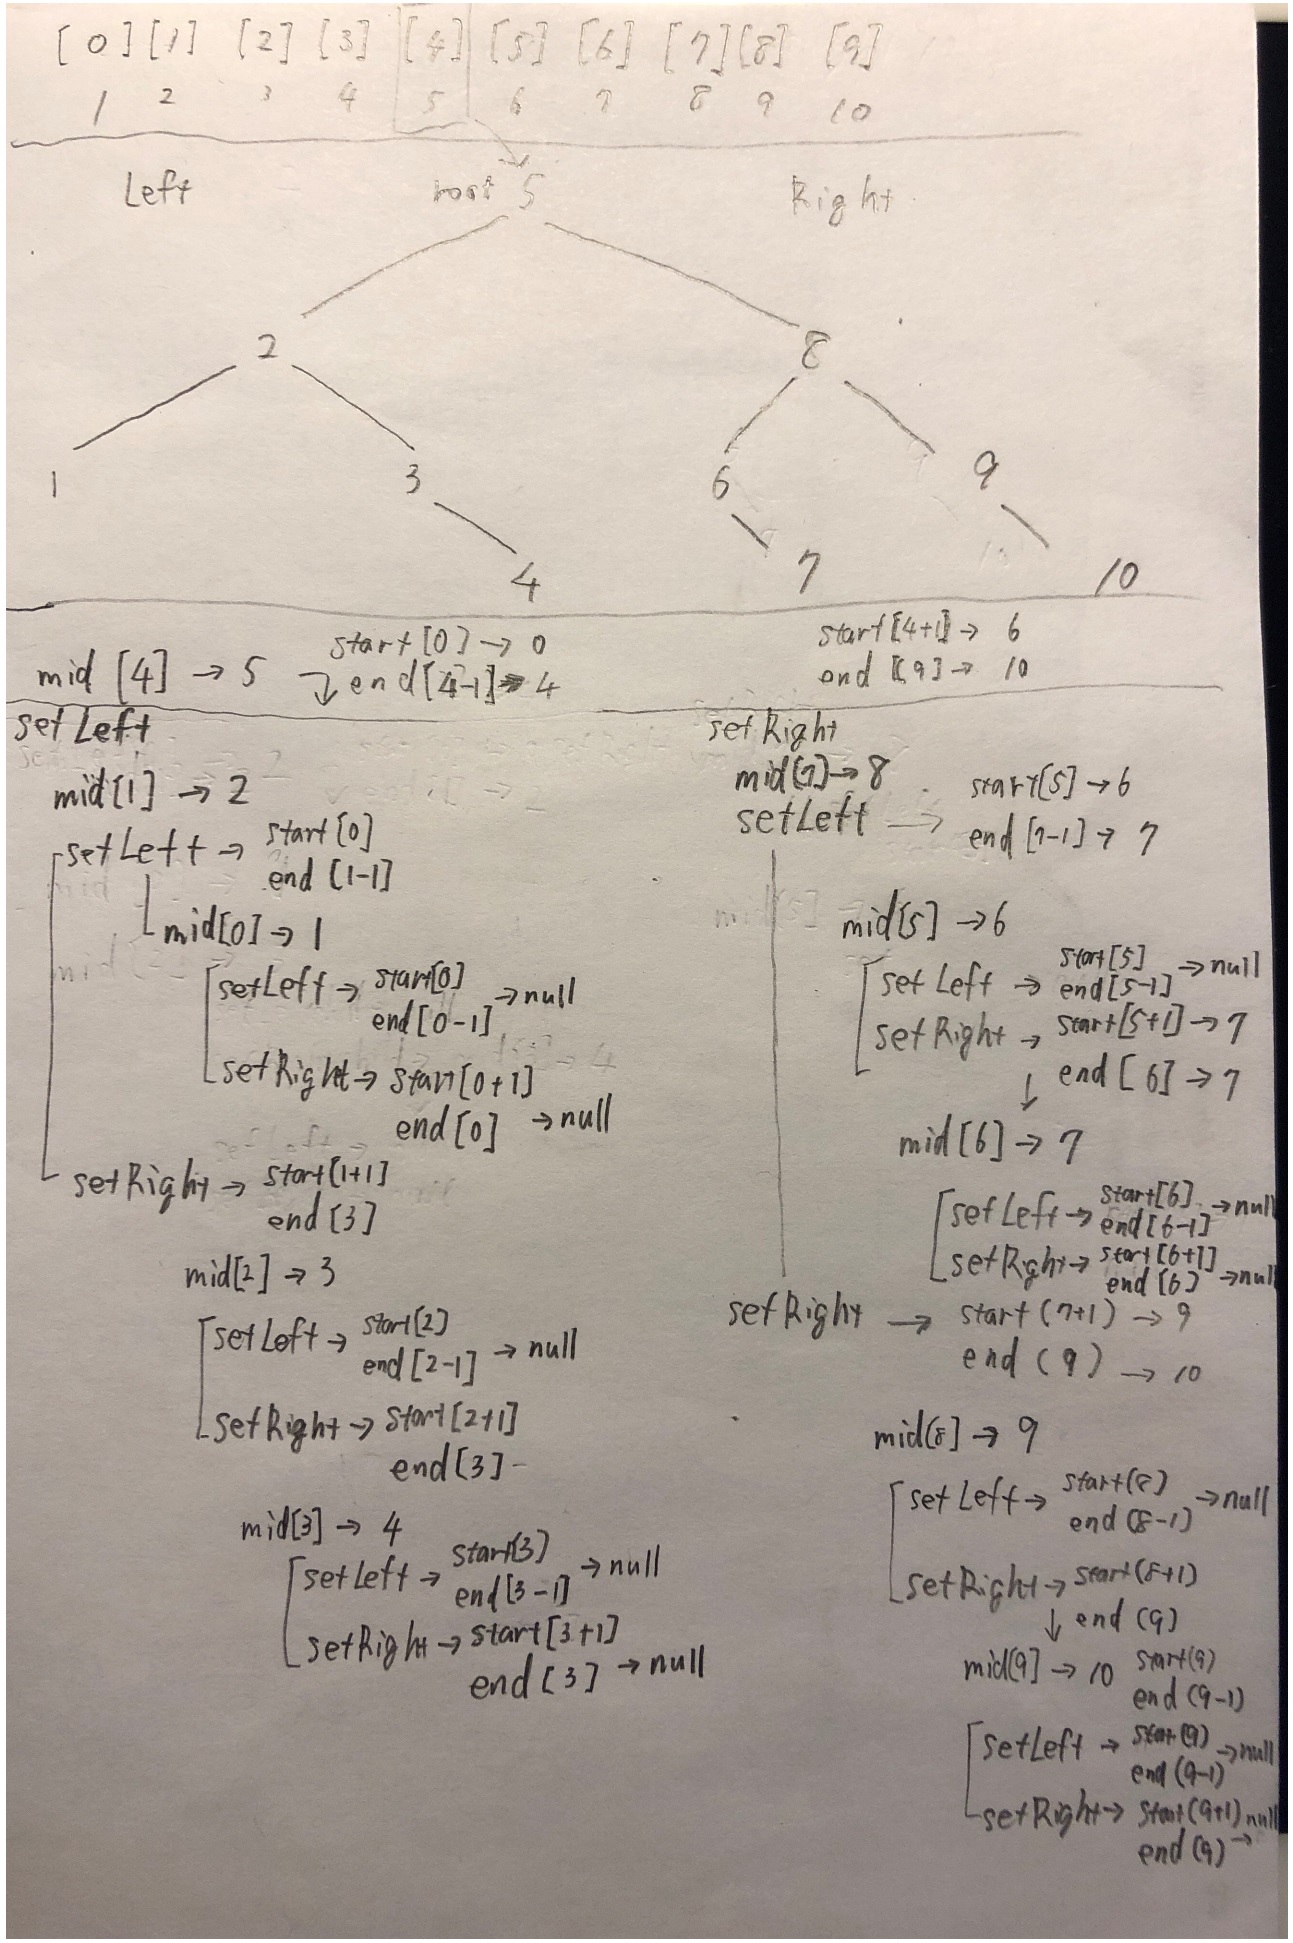 [0] [1] [2] [3] [4] [5] [6] [7] [8] [9]
1 2 3 4 5 6 7 8 9 10
Left root 5 Right
2 8
1 3 6 9
4 7 10
mid [4] → 5
start[0] → 0
end[4-1] → 4
start[4+1] → 6
end [9] → 10
setLeft
mid[1] → 2
setLeft → start[0]
end [1-1]
mid[0] → 1
setLeft → start[0]
end[0-1] → null
setRight → start[0+1]
end[0] → null
setRight → start[1+1]
end[3]
mid[2] → 3
setLeft → start[2]
end[2-1] → null
setRight → start[2+1]
end[3]
mid[3] → 4
setLeft → start[3)
end[3-1] → null
setRight → start[3+1]
end[3] → null
setRight
mid[7] → 8
setLeft → start[5] → 6
end [7-1] → 7
mid[5] → 6
setLeft → start[5]
end[5-1] → null
setRight → start[5+1] → 7
end[6] → 7
mid[6] → 7
setLeft → start[6]
end[6-1] → null
setRight → start[6+1]
end[6] → null
setRight → start(7+1) → 9
end (9) → 10
mid(8] → 9
setLeft → start(8)
end (8-1) → null
setRight → start(8+1)
end (9)
mid(9] → 10 start(9)
end (9-1)
setLeft → start(9)
end (9-1) → null
setRight → start(9+1) null
end (9) →